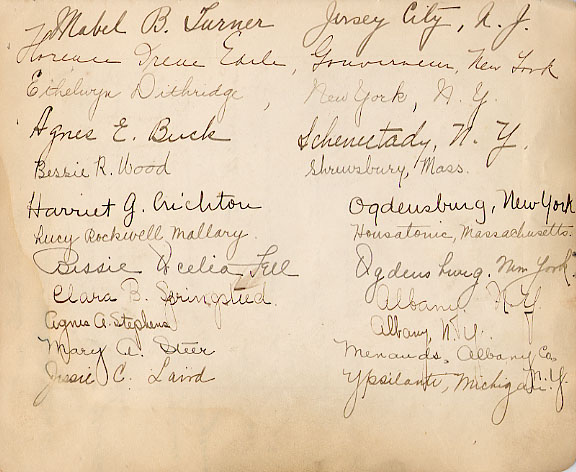 Mabel B. Turner Jersey City, N. J.
Florence Irene Earle, Gouverneur, New York
Ethelwyn Dithridge, New York, N. Y.
Agnes E. Buck Schenectady, N. Y.
Bessie R. Wood Shrewsbury, Mass.
Harriet G. Crichton Ogdensburg, New York
Lucy Rockwell Mallary. Housatonic, Massachusetts.
Bissie Acelia Fell Ogdensburg, New York.
Clara B. Springsted. Albany. N. Y.
Agnes A. Stephens Albany, N. Y.
Mary A. Steer Menands, Albany Co. N. Y.
Jessie C. Laird Ypsilanti, Michigan.